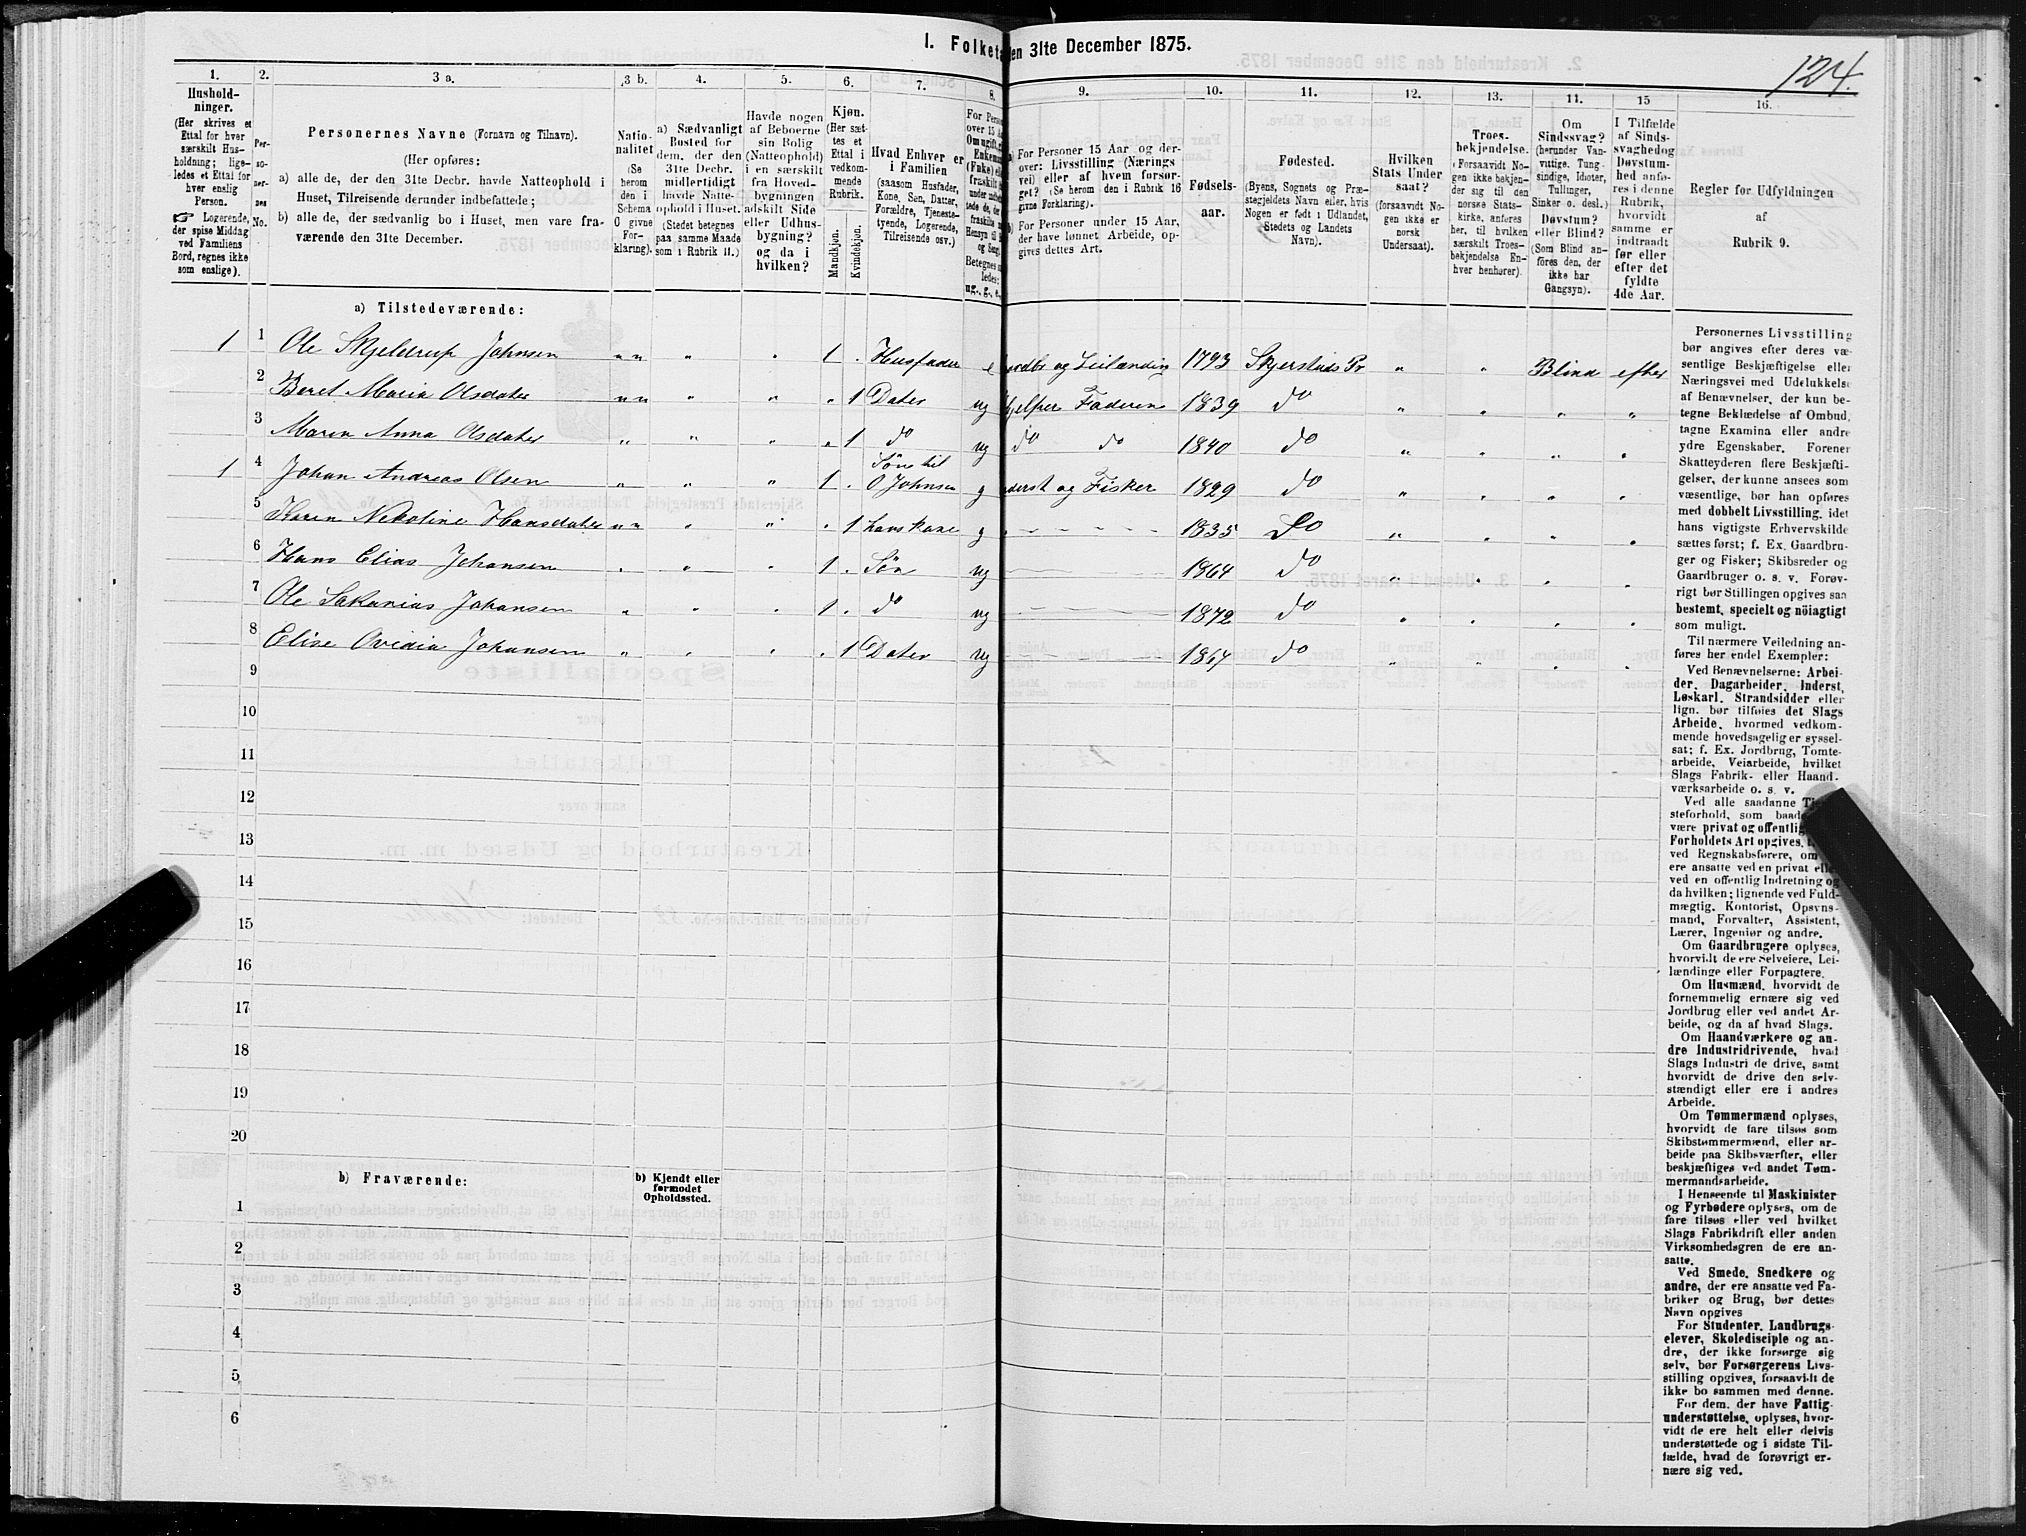 I. Folketa en 31te December 1875.
124.
1. 2. 3 a. 3 b. 4. 5. 6. 7. 8. 9. 10. 11. 12. 13. 14. 15 16.
Hushold-
ninger.
(Her skrives et
Ettal for hver
særskilt Hus-
holdning; lige-
ledes et Ettal for
hver enslig
Person.
☞ Logerende,
der spise Middag
ved Familiens
Bord, regnes ikke
som enslige).
Per-
so-
ner-
nes
No.
Personernes Navne (Fornavn og Tilnavn).
(Her opføres:
a) alle de, der den 31te Decbr. havde Natteophold i
Huset, Tilreisende derunder indbefattede;
b) alle de, der sædvanlig bo i Huset, men vare fra-
værende den 31te December.
Natio-
nalitet
(Se
herom
den i
Schema
O givne
For-
klaring).
a) Sædvanligt
Bosted for
dem, der den
31te Decbr.
midlertidigt
havde Natte-
ophold i Huset.
(Stedet betegnes
paa samme Maade
som i Rubrik 11.)
Havde nogen
af Beboerne
sin Bolig
(Natteophold)
i en særskilt
fra Hoved-
bygningen
adskilt Side
eller Udhus-
bygning?
og da i
hvilken?
Kjøn.
(Her sæt-
tes et
Ettal i
vedkom-
mende
Rubrik.
Mandkjøn.
Kvindekjøn.
Hvad Enhver er
i Familien
(saasom Husfader,
Kone, Søn, Datter,
Forældre, Tjeneste-
tyende, Logerende,
Tilreisende osv.)
For Pers
over 15 Aa
Om ugift, g
Enkema
(Fraskilt
ledes:
ug., g., e.
a) For Personer 15 Aar og der-
over: Livsstilling (Nærings
vei) eller af hvem forsør-
get? (Se herom den i Rubrik 16
givne Forklaring).
b) For Personer under 15 Aar,
der have lønnet Arbeide, op-
gives dettes Art.
Fødsels-
aar.
Fødested.
(Byens, Sognets og Præ-
stegjeldets Navn eller, hvis
Nogen er født i Udlandet,
Stedets og Landets
Navn).
Hvilken
Stats Under
saat?
(forsaavidt No-
gen ikke er
norsk
Undersaat).
Troes-
bekjendelse.
(Forsaavidt No-
gen ikke bekjen-
der sig til den
norske Stats-
kirke, anføres
her, til hvilken
særskilt Troes-
bekjendelse En-
hver henhører).
Om
Sindssvag?
(herunder Van-
vittige, Tung-
sindige, Idioter,
Tullinger,
Sinker o. desl.)
Døvstum?
eller Blind?
(Som Blind an-
føres den, der
ikke har
Gangsyn).
I Tilfælde
af Sinds-
svaghed og
Døvstum-
hed anfø-
res i denne
Rubrik,
hvorvidt
samme er
indtraadt
før eller
efter det
fyldte
4de Aar.
Regler for Udfyldningen
af
Rubrik 9.
a) Tilstedeværende:
1 1 Ole Skjeldrup Johnsen " " " " 1 . Husfader e ordbr og Leilænding 1793 Skjerstads Pr " " Blind efter
2 Beret Maria Olsdater " " " " " 1 Dater ug hjelper Faderen 1839 do " " " "
3 Maren Anna Olsdater " " " " 1 do ug do do 1840 do " " " "
1 4 Johan Andreas Olsen " " " 1 . Søn til O Johnsen g nderst og Fisker 1829 do " " " "
5 Karen Nekoline Hansdater " " " " " 1 hans kone g 1835 do " " " "
6 Hans Elias Johansen " " " 1 . Søn ug 1864 do " " " "
7 Ole Sakarias Johansen " " " 1 . do ug 1872 do " " " "
8 Elise Ovidia Johansen " " " " 1 Dater ug 1867 do " " " "
9
10
11
12
13
14
15
16
17
18
19
20
b) Fraværende:
b) Kjendt eller
formodet
Opholdssted.
1
2
3
4
5
6
Personernes Livsstilling
bør angives efter deres væ-
sentlige Beskjæftigelse eller
Næringsvei med Udelukkelse
af Benævnelser, der kun be-
tegne Beklædelse af Ombud,
tagne Examina eller andre
ydre Egenskaber. Forener
Skatteyderen flere Beskjæfti-
gelser, der kunne ansees som
væsentlige, bør han opføres
med dobbelt Livsstilling, idet
hans vigtigste Erhvervskilde
sættes først; f. Ex. Gaardbru-
ger og Fisker; Skibsreder og
Gaardbruger o. s. v. Forøv-
rigt bør Stillingen opgives saa
bestemt, specielt og nöiagtigt
som muligt.
Til nærmere Veiledning an-
føres her endel Exempler:
Ved Benævnelserne: Arbei-
der, Dagarbeider, Inderst,
Løskarl, Strandsidder eller
lign. bør tilføies det Slags
Arbeide, hvormed vedkom-
mende hovedsagelig er syssel-
sat; f. Ex. Jordbrug, Tomte-
arbeide, Veiarbeide, hvilket
Slags Fabrik- eller Haand-
værksarbeide o. s. v.
Ved alle saadanne Tj
steforhold, som baad
være privat og offentlig
Forholdets Art opgives,
ved Regnskabsførere, om
ere ansatte ved en privat elle
ved en offentlig Indretning og
da hvilken; lignende ved Fuld-
mægtig, Kontorist, Opsyns-
mand, Forvalter, Assistent,
Lærer, Ingeniør og andre.
Om Gaardbrugere oplyses,
hvorvidt de ere Selveiere, Lei-
lændinge eller Forpagtere.
Om Husmænd, hvorvidt de
fornemmelig ernære sig ved
Jordbrug eller ved andet Ar-
beide, og da af hvad Slags.
Om Haandværkere og an-
dre Industridrivende, hvad
Slags Industri de drive, samt
hvorvidt de drive den selv-
stændigt eller ere i andres
Arbeide.
Om Tømmermænd oplyses,
hvorvidt de fare tilsøs som
Skibstømmermænd, eller ar-
beide paa Skibsværfter, eller
beskjæftiges ved andet Tøm-
mermandsarbeide.
I Henseende til Maskinister
og Fyrbødere oplyses, om de
fare tilsøs eller ved hvilket
Slags Fabrikdrift eller anden
Virksomhedsgren de ere an-
satte.
Ved Smede, Snedkere og
andre, der ere ansatte ved Fa-
briker og Brug, bør dettes
Navn opgives
For Studenter, Landbrugs-
elever, Skoledisciple og an-
dre, der ikke forsørge sig
selv, bør Forsørgerens Livs-
stilling opgives, forsaavidt de
ikke bo sammen med denne.
For dem, der have Fattig-
understøttelse, oplyses, hvor-
vidt de ere helt eller delvis
understøttede og i sidste Til-
fælde, hvad de forøvrigt er-
nære sig ved.